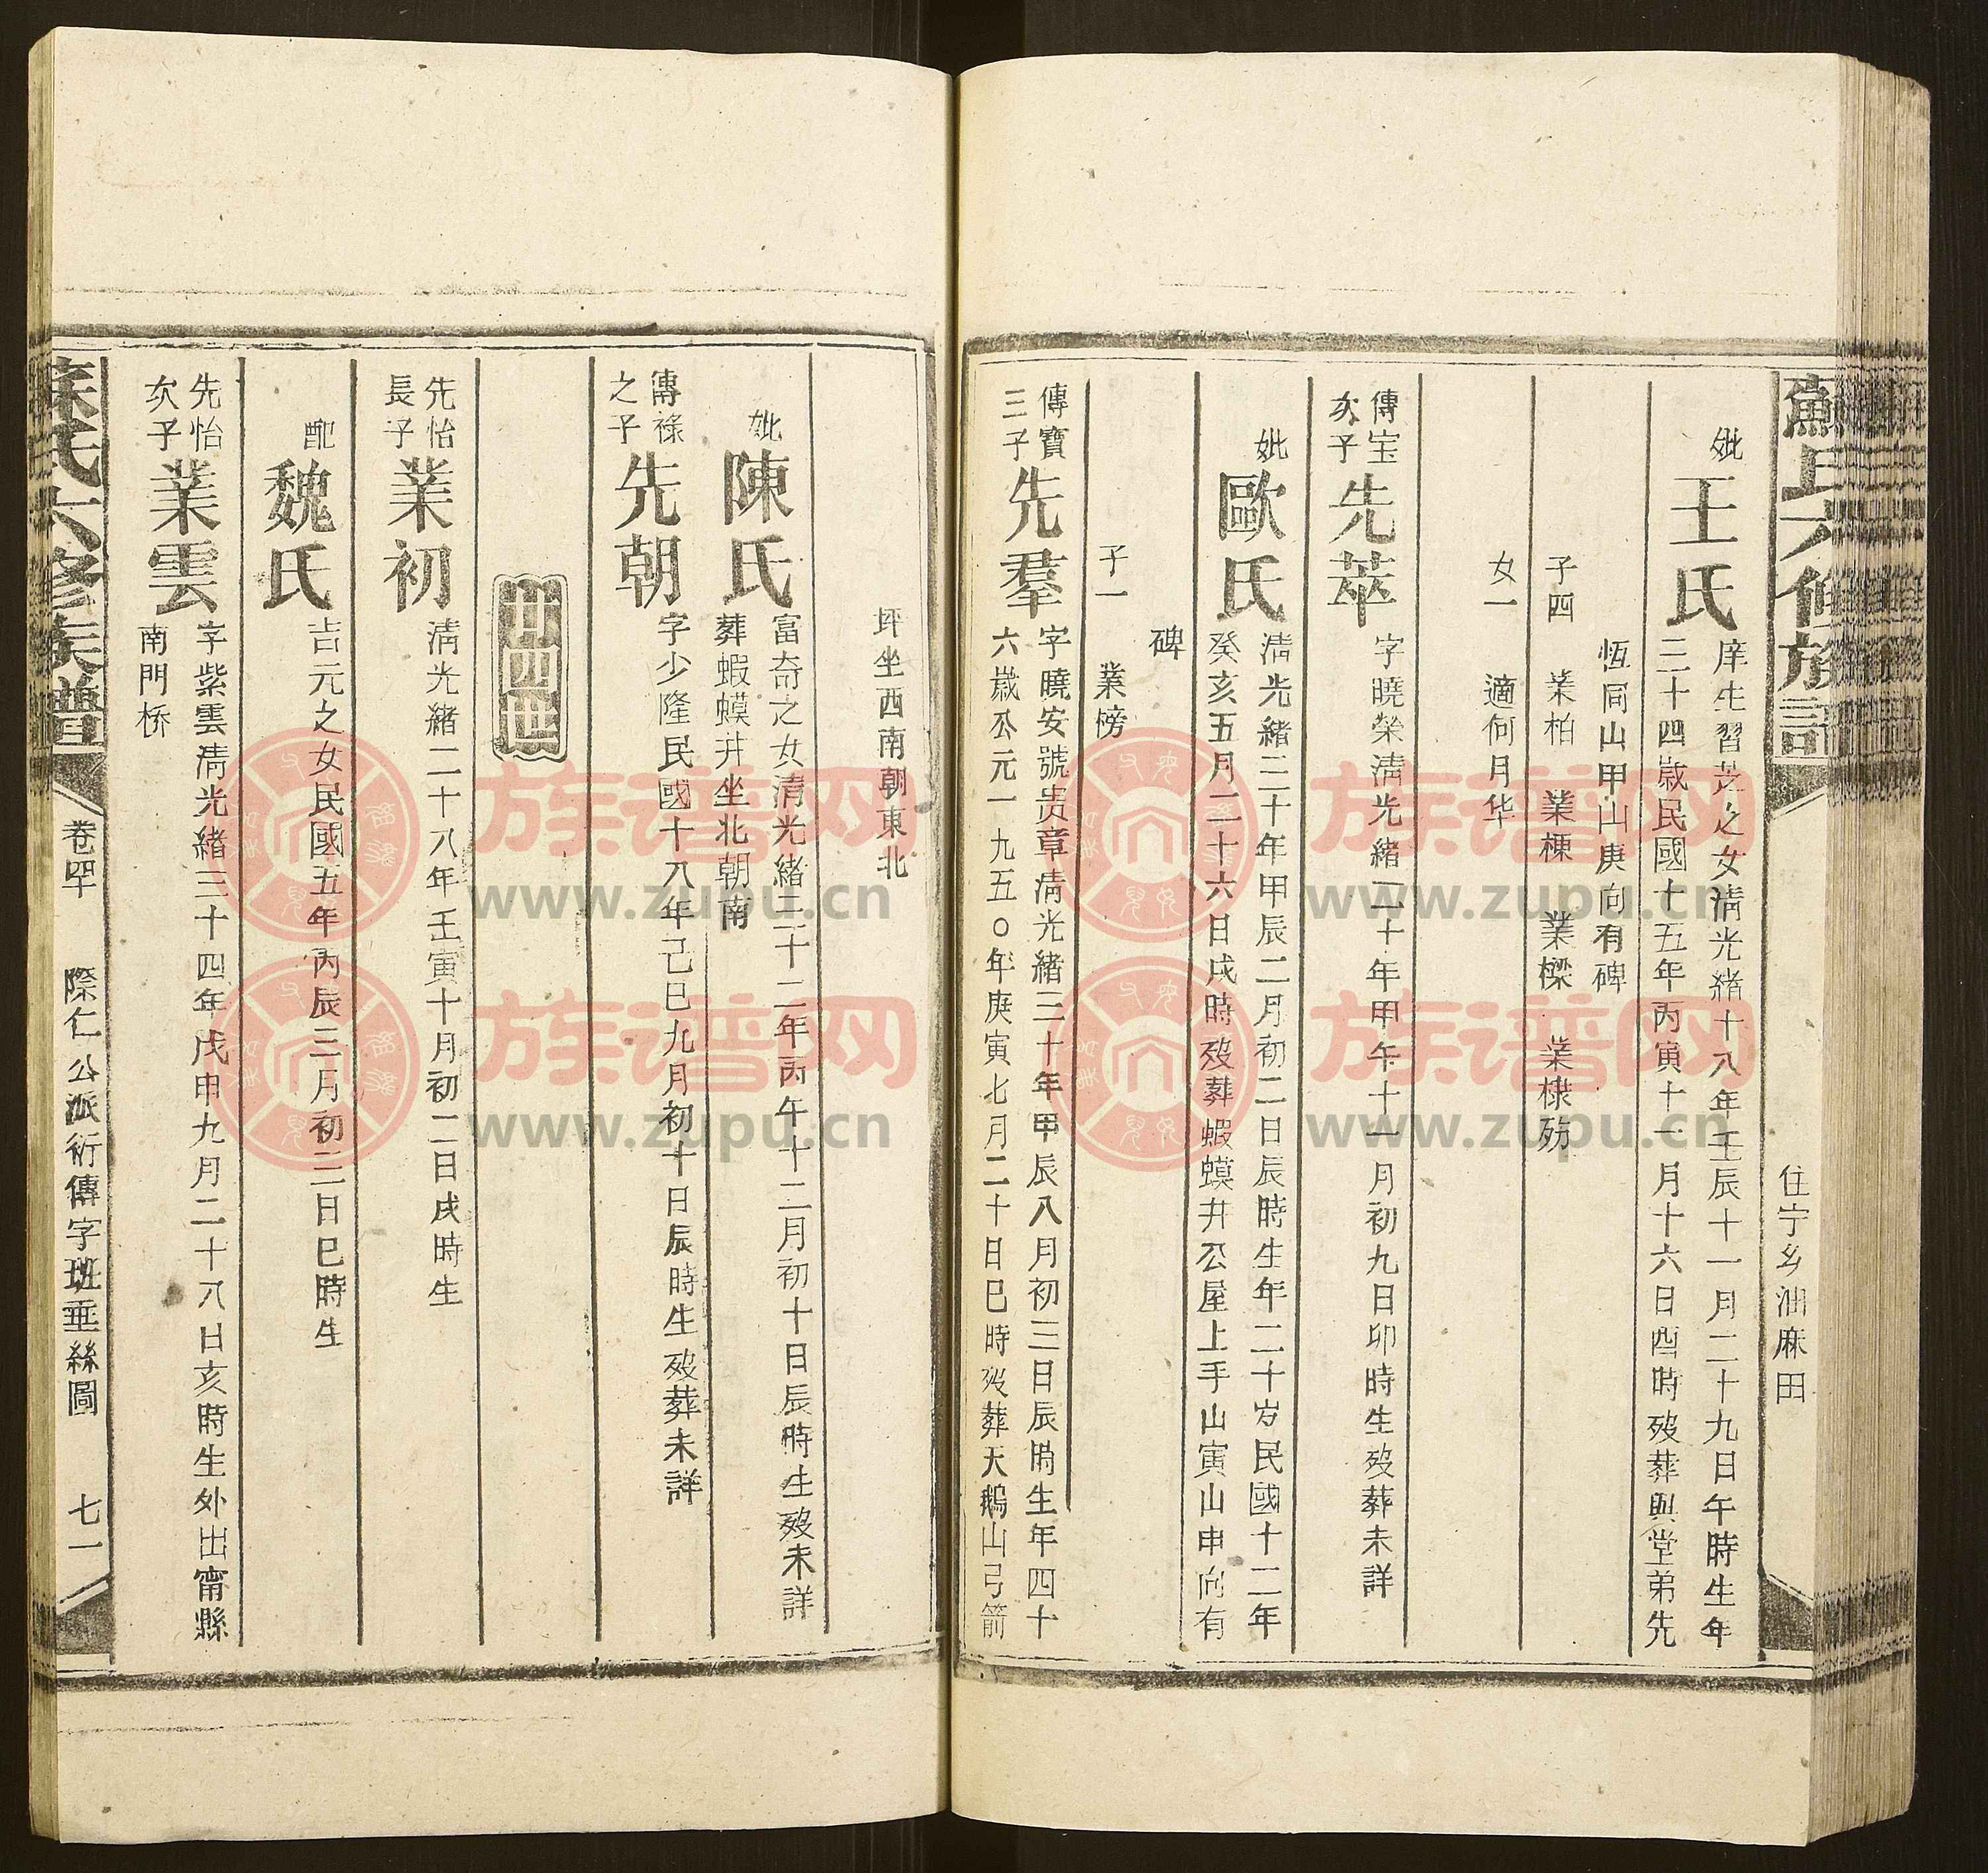 蘇氏六修族譜
住宁乡油麻田
妣
王氏
庠生習芝之女淸光緒十八年壬辰十一月二十九日午時生年
三十四歲民國十五年丙寅十一月十六日酉時歿葬與堂弟先
恆同山甲山庚向有碑
子四 業柏 業棟 業樑 業棣殇
女一 適何月华
傳宝
次子
先萃
字曉榮淸光緒二十年甲午十一月初九日卯時生歿葬未詳
妣
歐氏
淸光緒三十年甲辰二月初二日辰時生年二十岁民國十二年
癸亥五月二十六日戌時歿葬蝦蟆井公屋上手山寅山申向有
碑
子一 業榜
傳寶
三子
先羣
字曉安號贵章淸光緒三十年甲辰八月初三日辰時生年四十
六歲公元一九五〇年庚寅七月二十日巳時歿葬天鵝山弓箭
坪坐西南朝東北
妣
陳氏
富奇之女淸光緒三十二年丙午十二月初十日辰時生歿未詳
葬蝦蟆井坐北朝南
傳祿
之子
先朝
字少隆民國十八年己巳九月初十日辰時生歿葬未詳
廿四世
先怡
長子
業初
淸光緒二十八年壬寅十月初二日戌時生
配
魏氏
吉元之女民國五年丙辰三月初三日巳時生
先怡
次子
業雲
字紫雲淸光緒三十四年戊申九月二十八日亥時生外出甯縣
南門桥
蘇氏六修族譜
卷四牛
際仁公派衍傳字班垂絲圖
七一
族谱网
www.zupu.cn
族谱网
www.zupu.cn
族谱网
www.zupu.cn
族谱网
www.zupu.cn